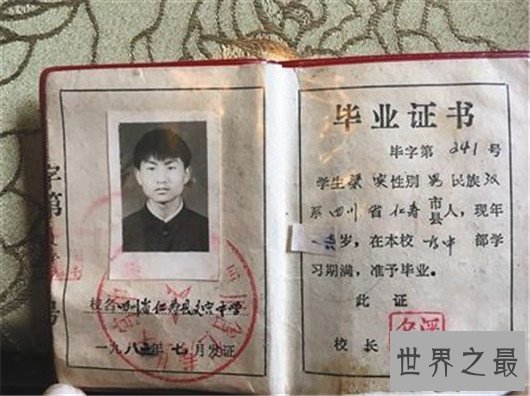 字第
号
校名四川省仁寿县文宫中学
一九八 年七月发证
毕业证书
毕字第 241 号
学生梁 性别 男 民族 汉
系 四川 省 仁寿 市县人，现年
岁，在本校 高中 部学
习期满，准予毕业。
此 证
校长
世界之最